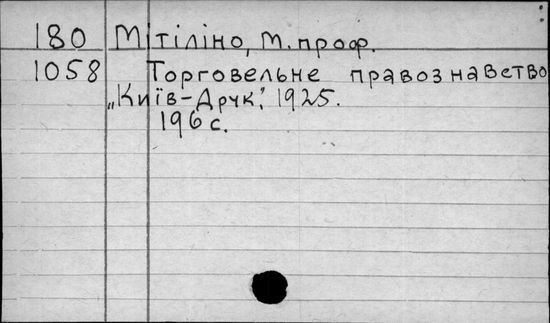 180 Мітіліно, М. проф.
1058 Торговельне правознавство
„Київ-Друк", 1925.
196 с.